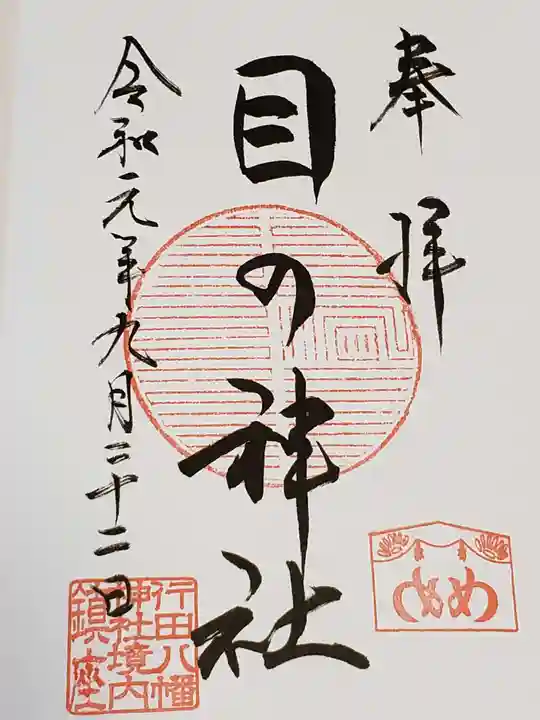 奉拝
目の神社
令和元年九月二十二日
行田八幡
神社境内
鎮座
め